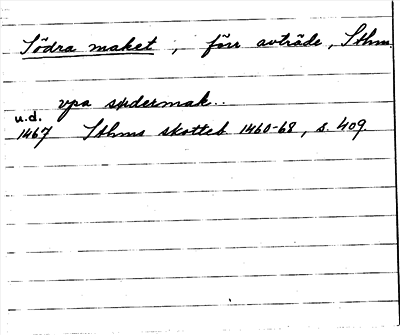 Södra maket, förr avträde, Sthm.
vpa sudermak..
u.d.
1467 Sthms skotteb. 1460-68, s. 409.